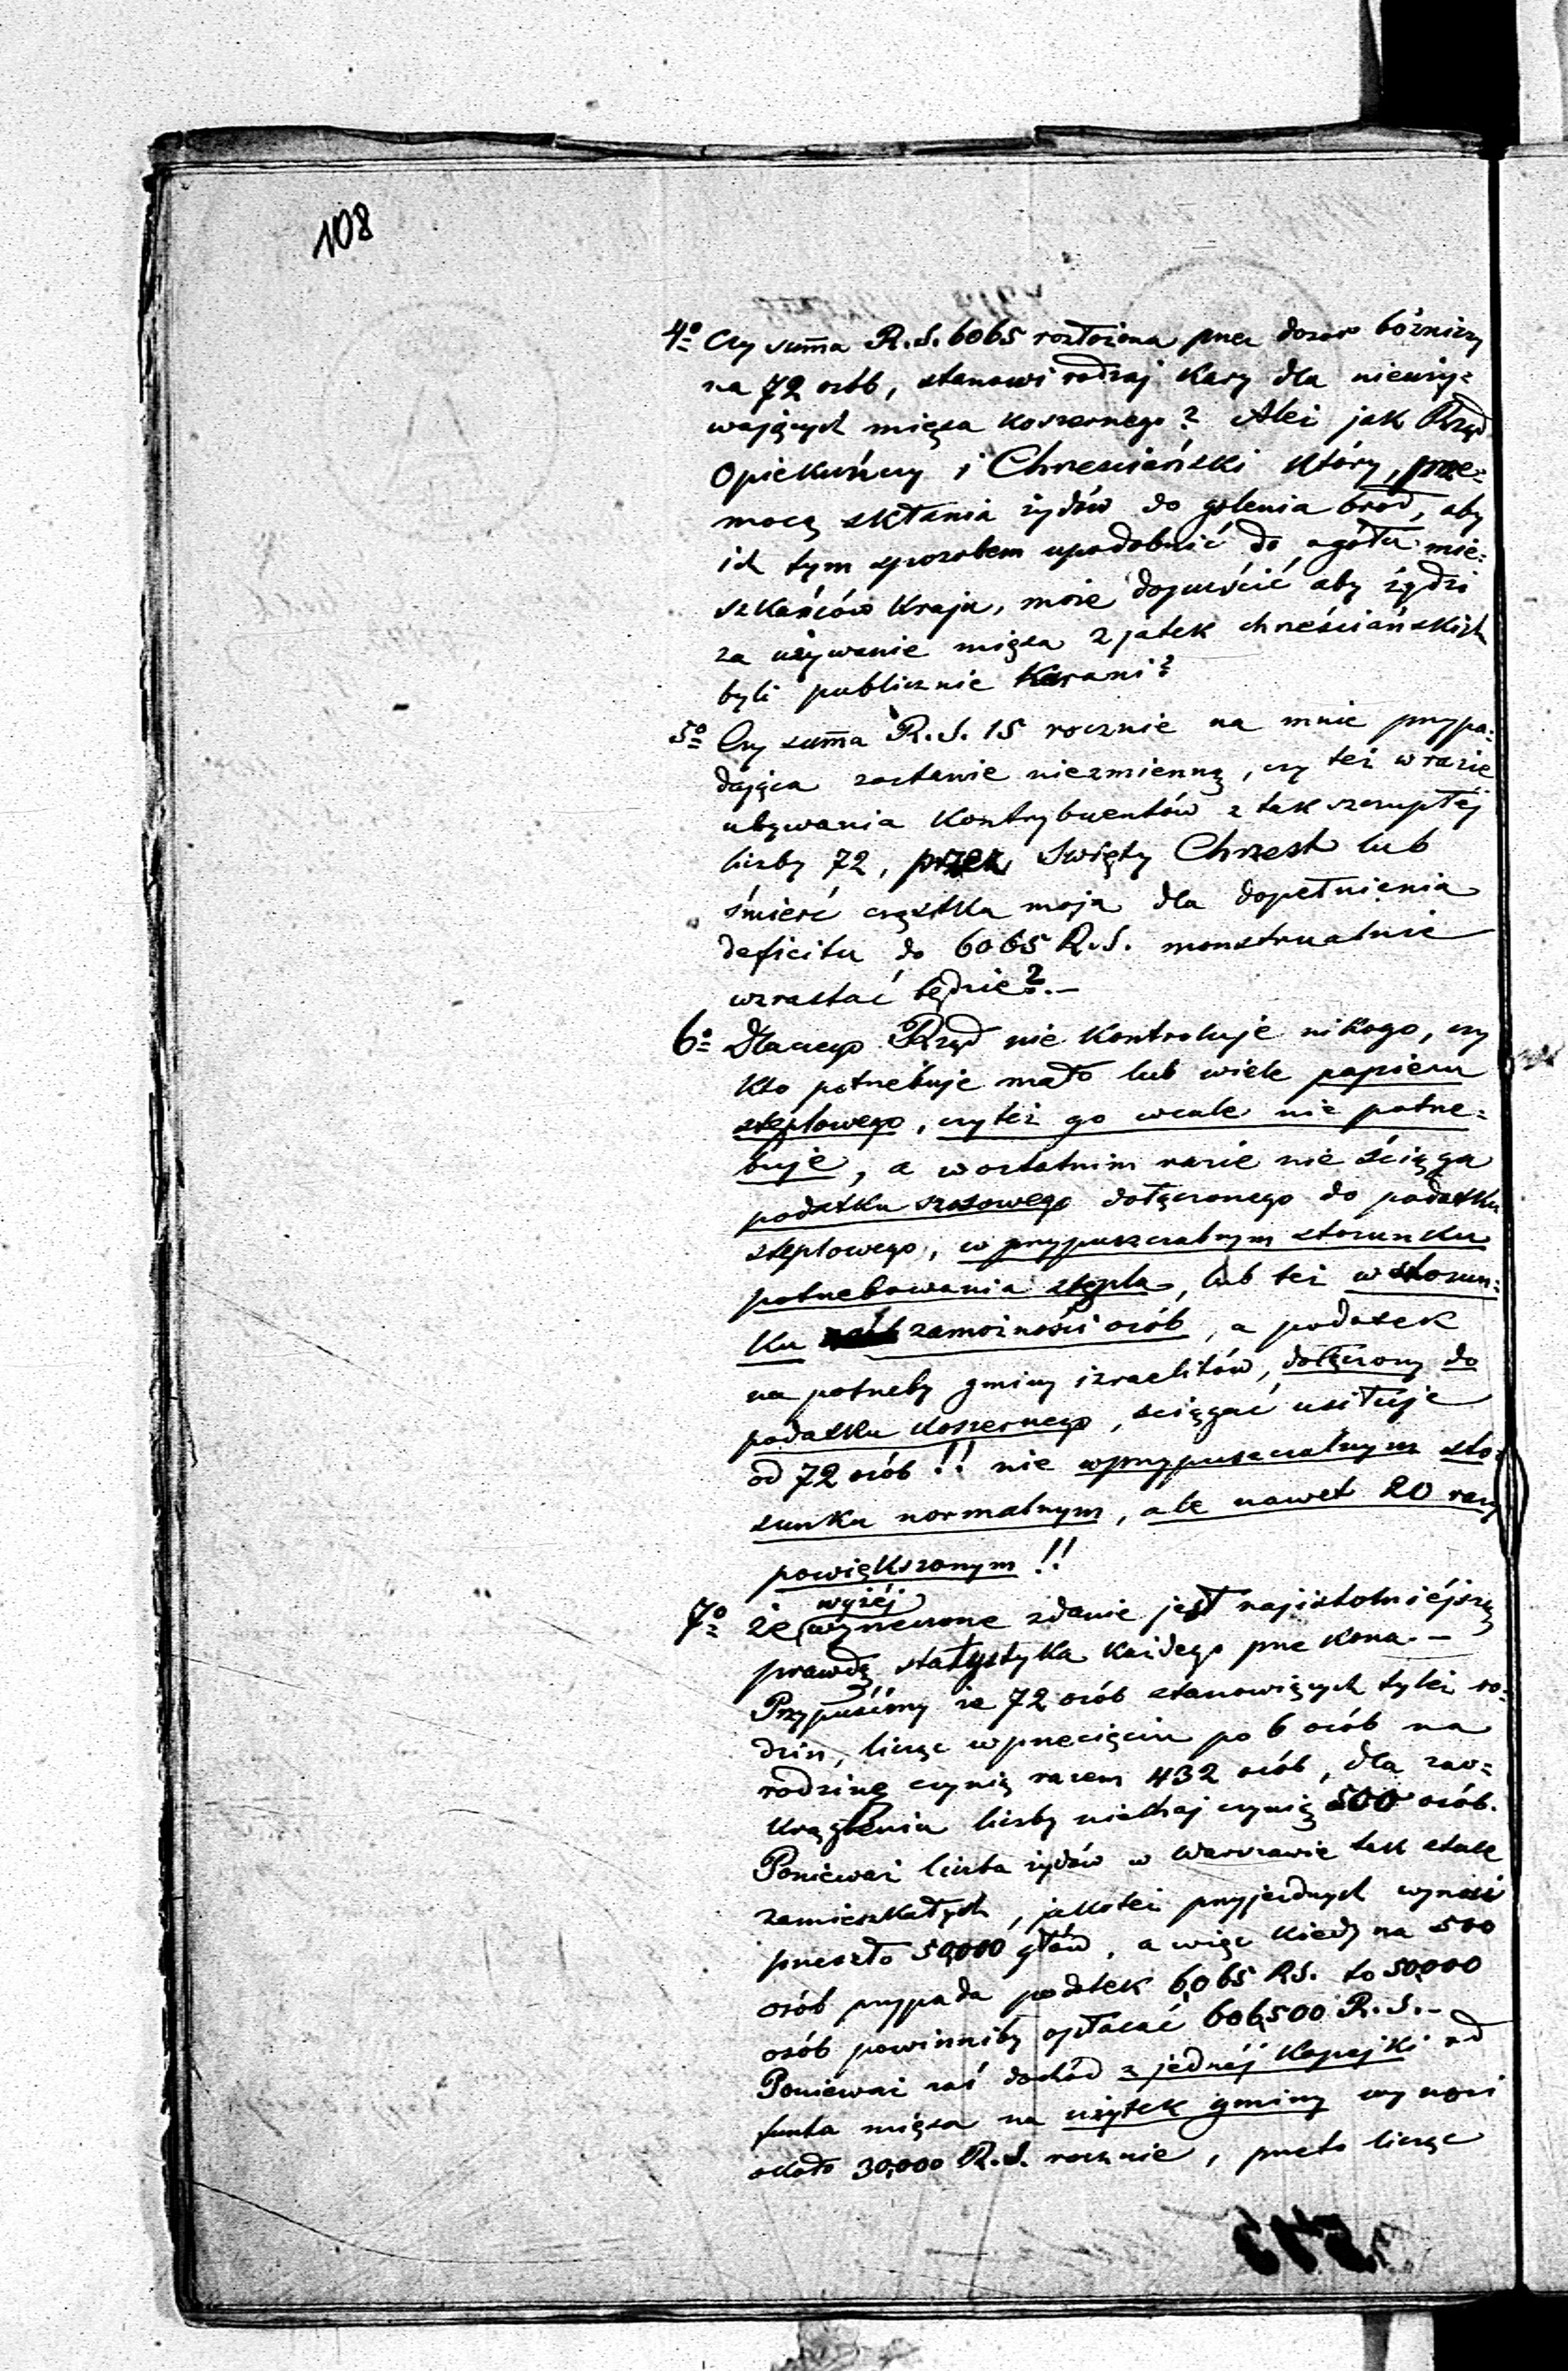 108
4º Czy summa R.S. 6065 rozłożona przez dozór bóżniczy
na 72 osób, stanowi rodzaj kary dla nieuży-
wających mięsa koszernego? Ależ jak Rząd
Opiekuńczy i Chrześciański który, prze-
mocą skłania żydów do golenia bród, aby
ich tym sposobem upodobnić do ogółu mie-
szkańców Kraju, może dopuścić aby żydzi
za używanie mięsa z jatek chrześciańskich
byli publicznie karani?
5º Czy summa R.S. 15 rocznie na mnie przypa-
dająca zostanie niezmienną, czy też w razie
ubywania kontrybuentów z tak szczupłéj
liczby 72, przez Święty Chrzest lub
śmierć cząstka moja dla dopełnienia
deficitu do 6065 R.S. monstrualnie
wzrastać będzie?.—
6º Dlaczego Rząd nie kontroluje nikogo, czy
kto potrzebuje mało lub wiele papieru
stęplowego, czyteż go wcale nie potrze-
buje, a w ostatnim razie nie ściąga
podatku szosowego dołączonego do podatku
stęplowego, w przypuszczalnym stosunku
potrzebowania stępla, lub też w stosun-
ku zamożności osób, a podatek
na potrzeby gminy izraelitów, dołączony do
podatku koszernego, ściągać usiłuje
od 72 osób!! nie w przypuszczalnym sto-
sunku normalnym, ale nawet 20 razy
powiększonym!!
wyżéj
7º że wyrzeczone zdanie jest najistotniéjszą
prawdą statystyka każdego przekona.—
Przypuśćmy że 72 osób stanowiących tyleż ro-
dzin, licząc w przecięciu po 6 osób na
rodzinę czynią razem 432 osób, dla zao-
krąglenia liczby niechaj czynią 500 osób.
Ponieważ liczba żydów w Warszawie tak stale
zamieszkałych, jakoteż przyjezdnych wynosi
przeszło 50,000 głów, a więc kiedy na 500
osób przypada podatek 6,065 RS. to 50,000
osób powinniby opłacać 606,500 R.S.—
Ponieważ zaś dochód z jednéj kopejki od
funta mięsa na użytek gminy wynosi
około 30,000 R.S. rocznie, przeto licząc